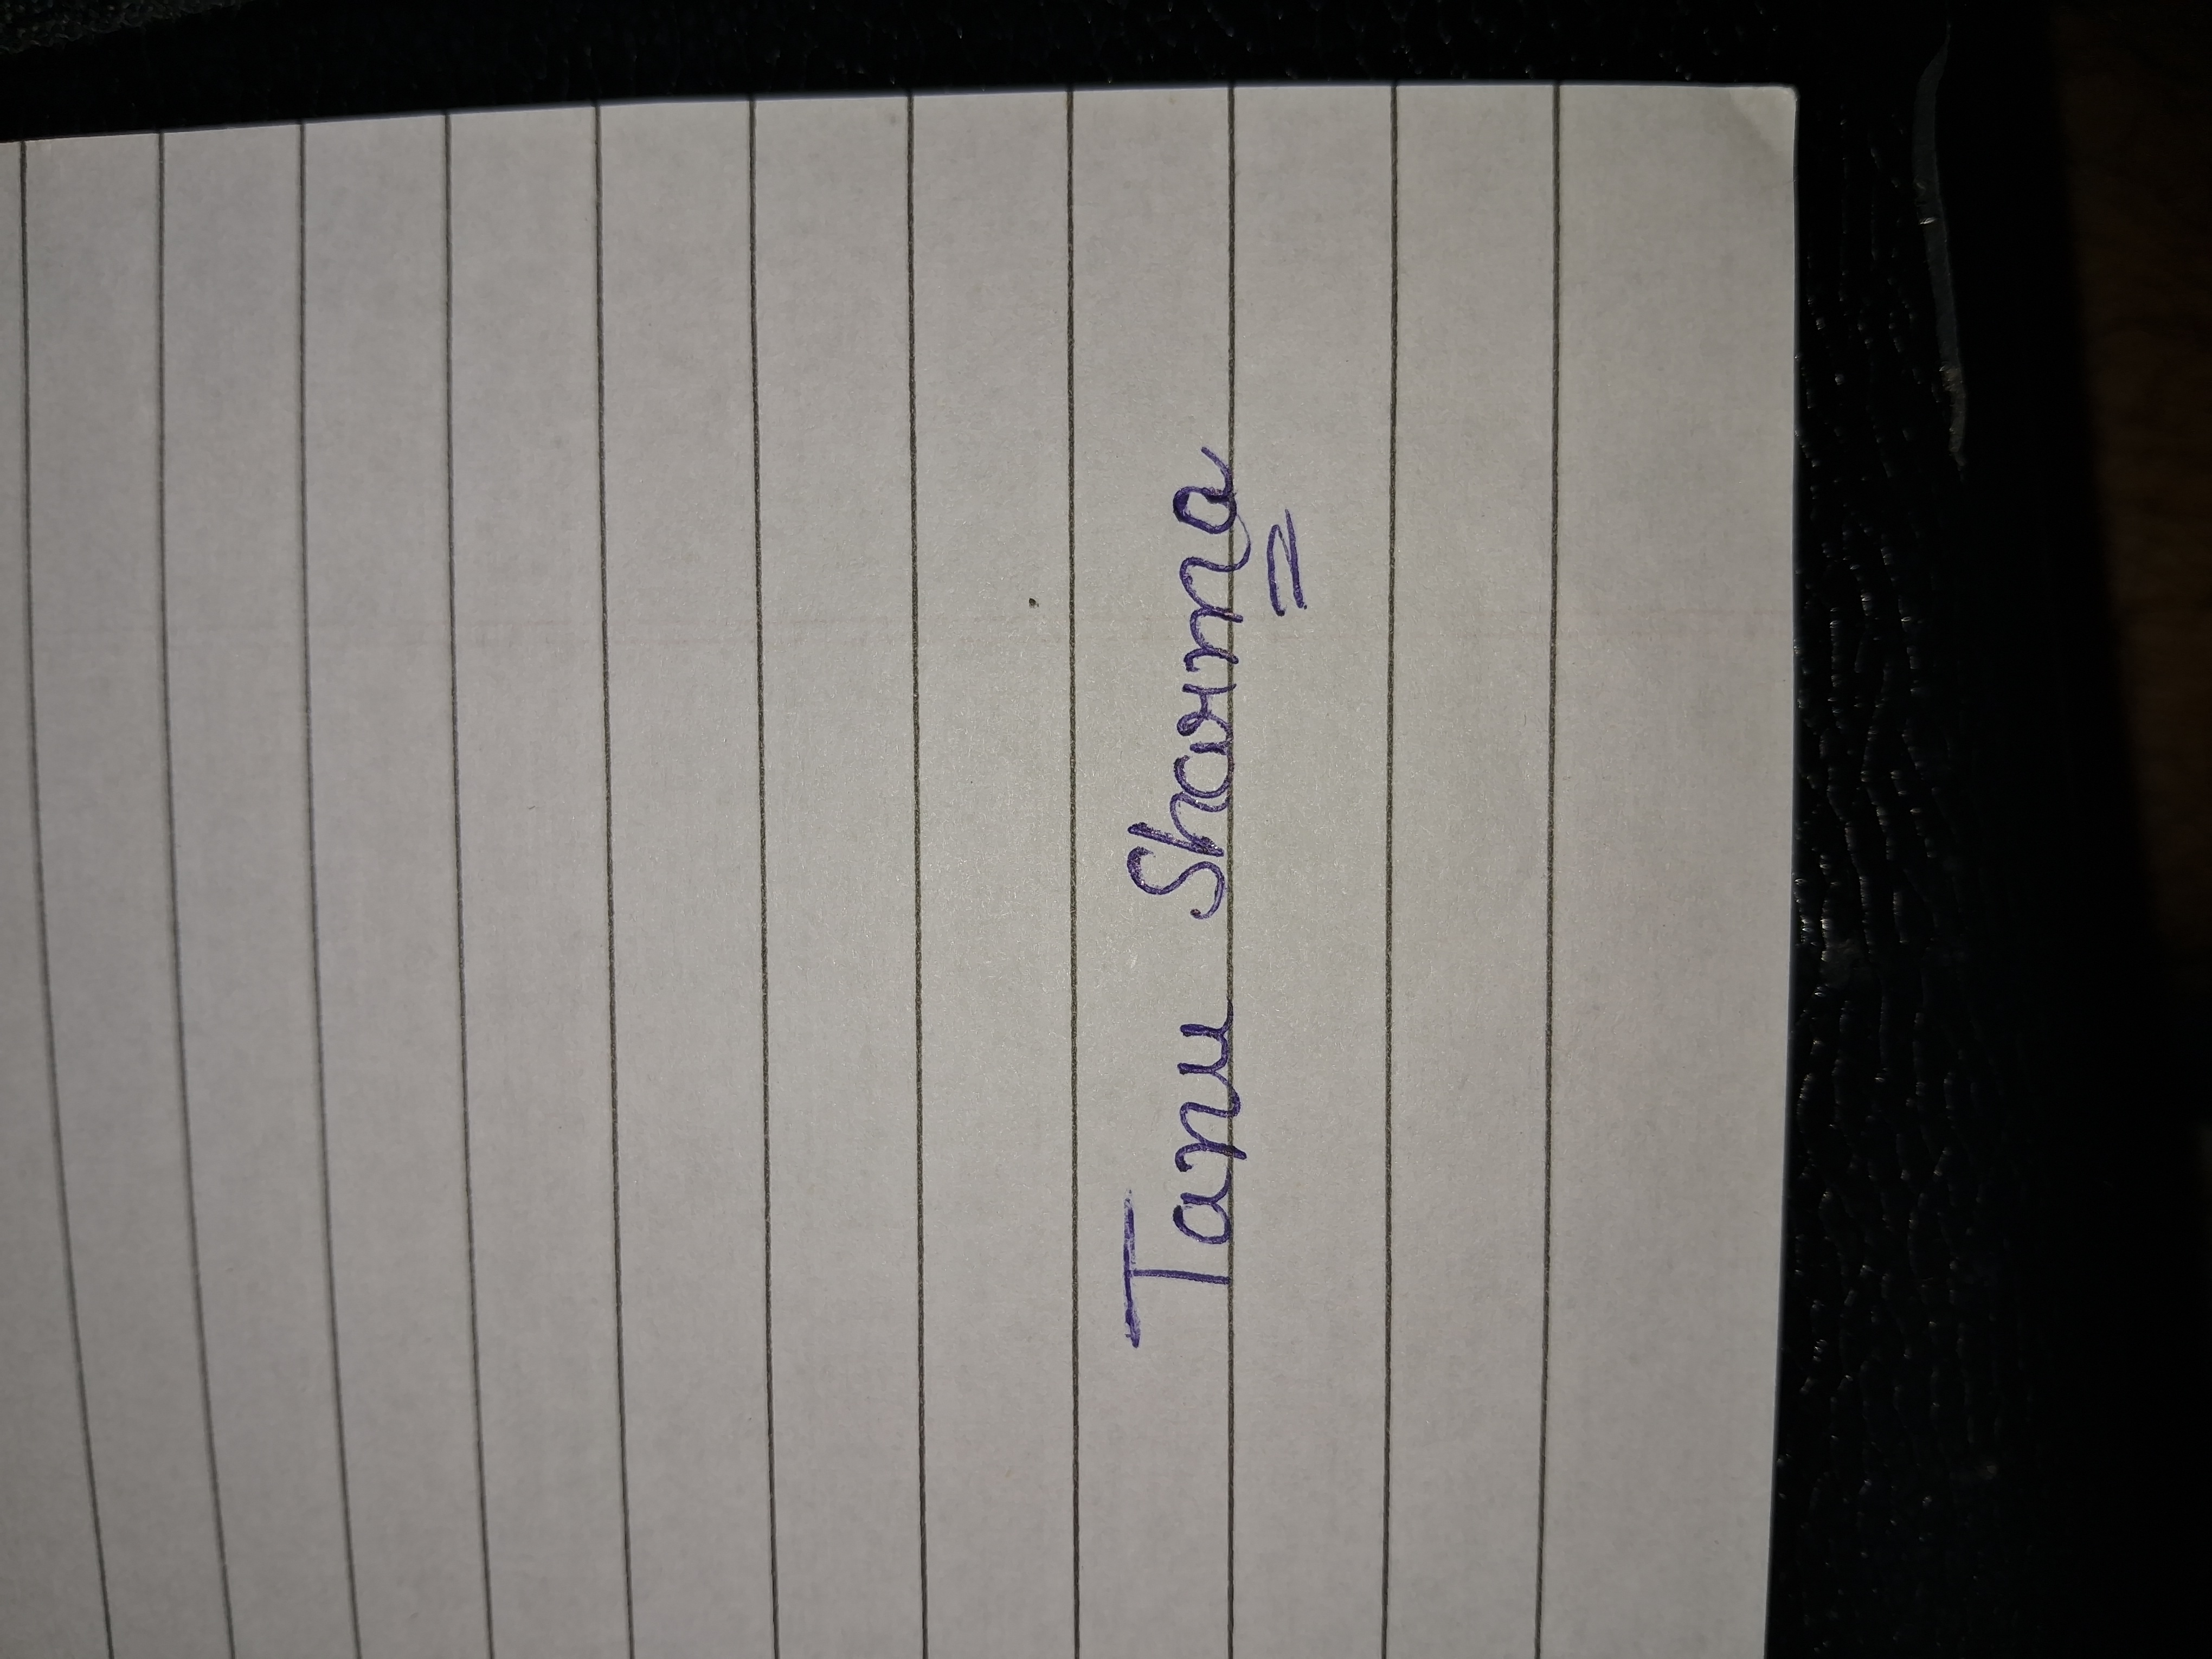 Tanu Sharma